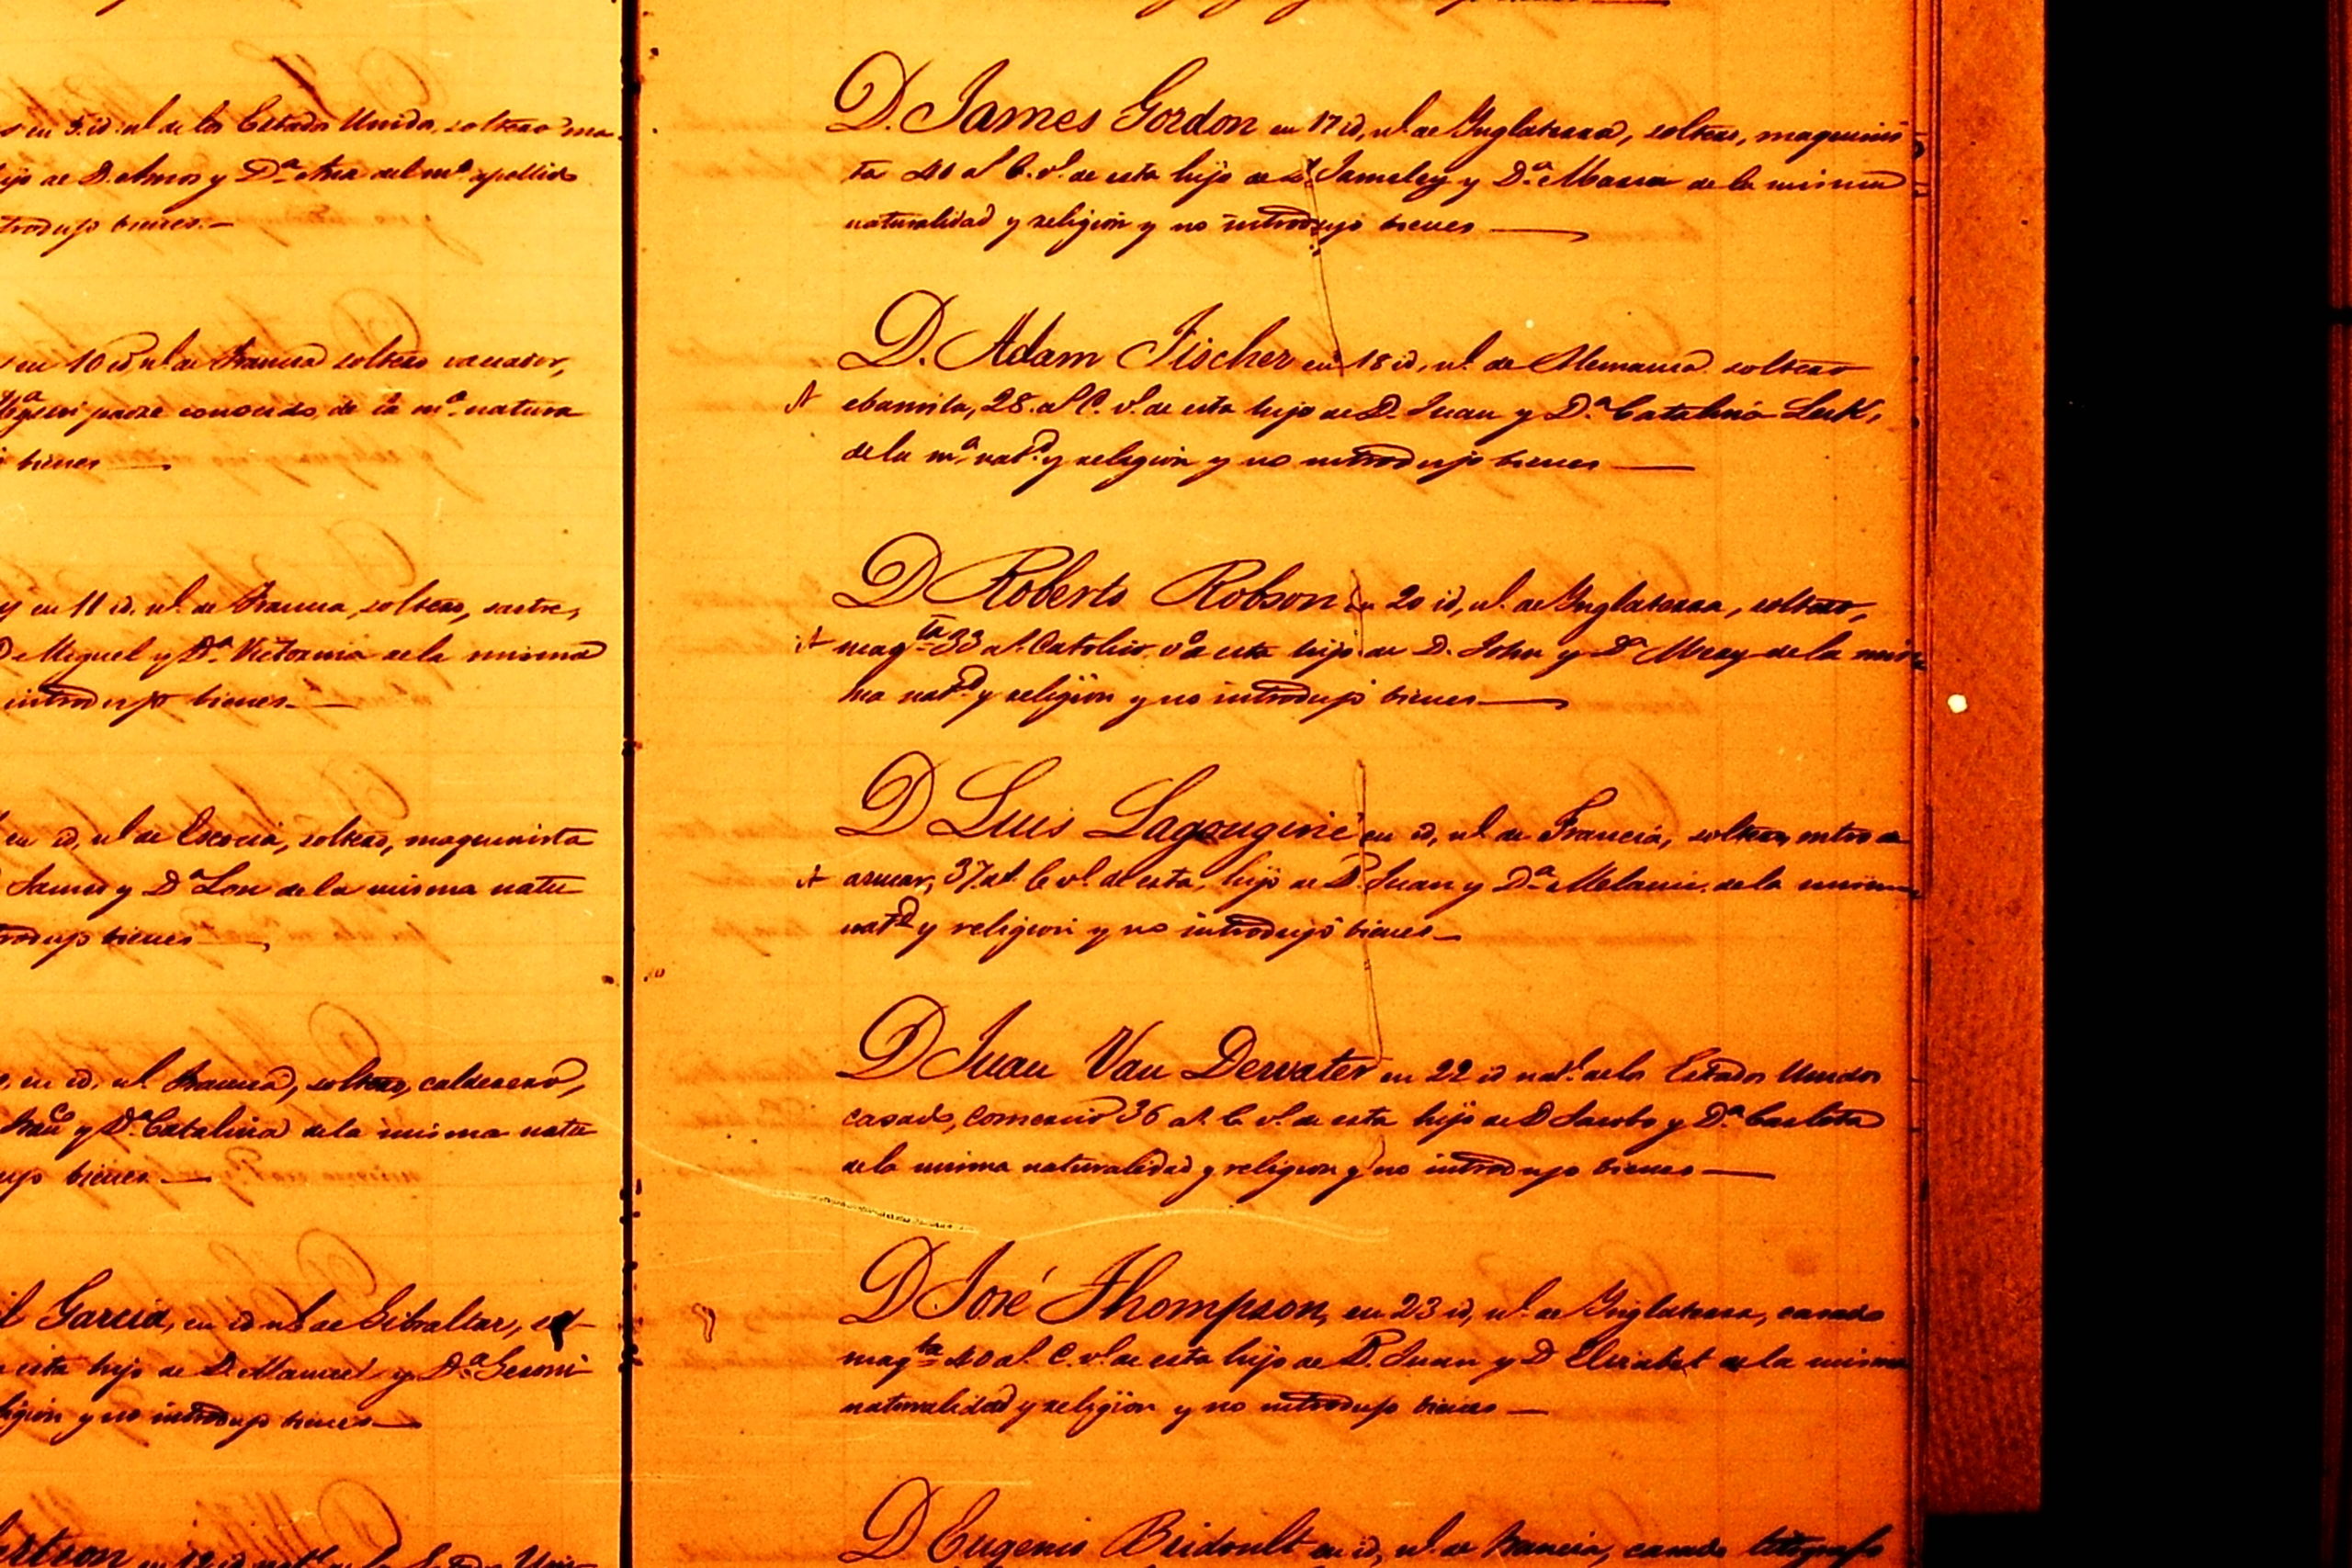 en 3. id. nl. de los Estados Unidos, soltero ma
hijo de D. Amos y Dª Ana del mº apellido
trodujo bienes.—
en 10 id, nl. de Francia soltero
padre conocido, de la mª natura
bienes —
y en 11 id. nl. de Francia, soltero, sastre,
D Miguel y Dª Victorina de la misma
introdujo bienes.—
en id, nl de Escocia, soltero, maquinista
James y Dª Lon de la misma natu
trodujo bienes —
en id, nl Francia, soltero, calderero,
Franco y Dª Catalina de la misma natu
ujo bienes —
l Garcia, en id nl de Gibraltar, sol-
esta hijo de D. Manuel y Dª Geroni
ligion y no introdujo bienes —
en 12 id natl de los Estados Uni-
D. James Gordon en 17 id, nl. de Inglaterra, soltero, maquinis
ta 40 al C. vl. de esta hijo de D. Jamsley y Dª Maria de la misma
naturalidad y religion y no introdujo bienes —
D. Adam Fischer en 18 id, nl. de Alemania soltero
A ebanista, 28. al C. vl. de esta hijo de D. Juan y Dª Catalina Luk,
de la mª natd. y religion y no introdujo bienes —
D Roberto Robson en 20 id, nl. de Inglaterra, soltero,
A magta 33 al. Catolico. vº de esta hijo de D. John y Dª Meay de la mis
ma natd. y religion y no introdujo bienes —
D Luis Lagougine en id, nl. de Francia, soltero, mtro de
A azucar, 37. al. C vl. de esta, hijo de D. Juan y Dª Melanie. de la misma
natd y religion y no introdujo bienes —
D Juan Van Dervater en 22 id natl. de los Estados Unidos
casado, comercio 36 al. C. vl. de esta hijo de D Jacobo y Dª Carlota
de la misma naturalidad y religion y no introdujo bienes —
D José Thompson, en 23 id, nl. de Inglaterra, casado
magta 40 al. C. vl. de esta hijo de D. Juan y D Elizabet de la misma
naturalidad y religion y no introdujo bienes —
D Eugenio Bridoult en id, nl. de Francia, casado litografo